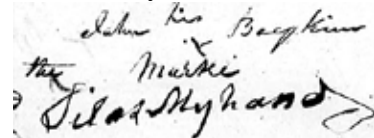 John his Bagkins
x
the Marke
Silas Myhand